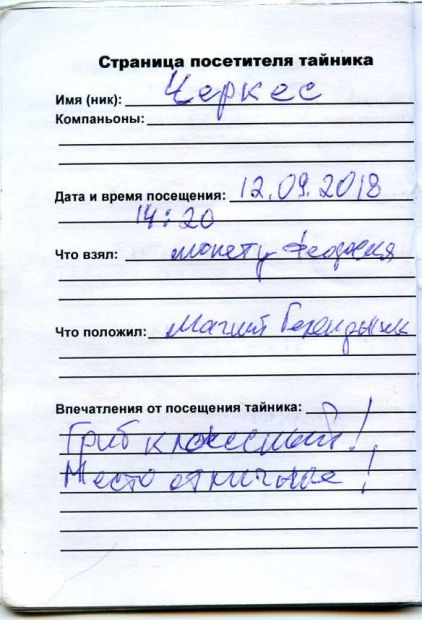 Страница посетителя тайника
Имя (ник): Черкес
Компаньоны:
Дата и время посещения: 12.09.2018
14:20
Что взял: монету Феодосия
Что положил: Магнит
Впечатления от посещения тайника:
Гриб классный!
Место отличное!